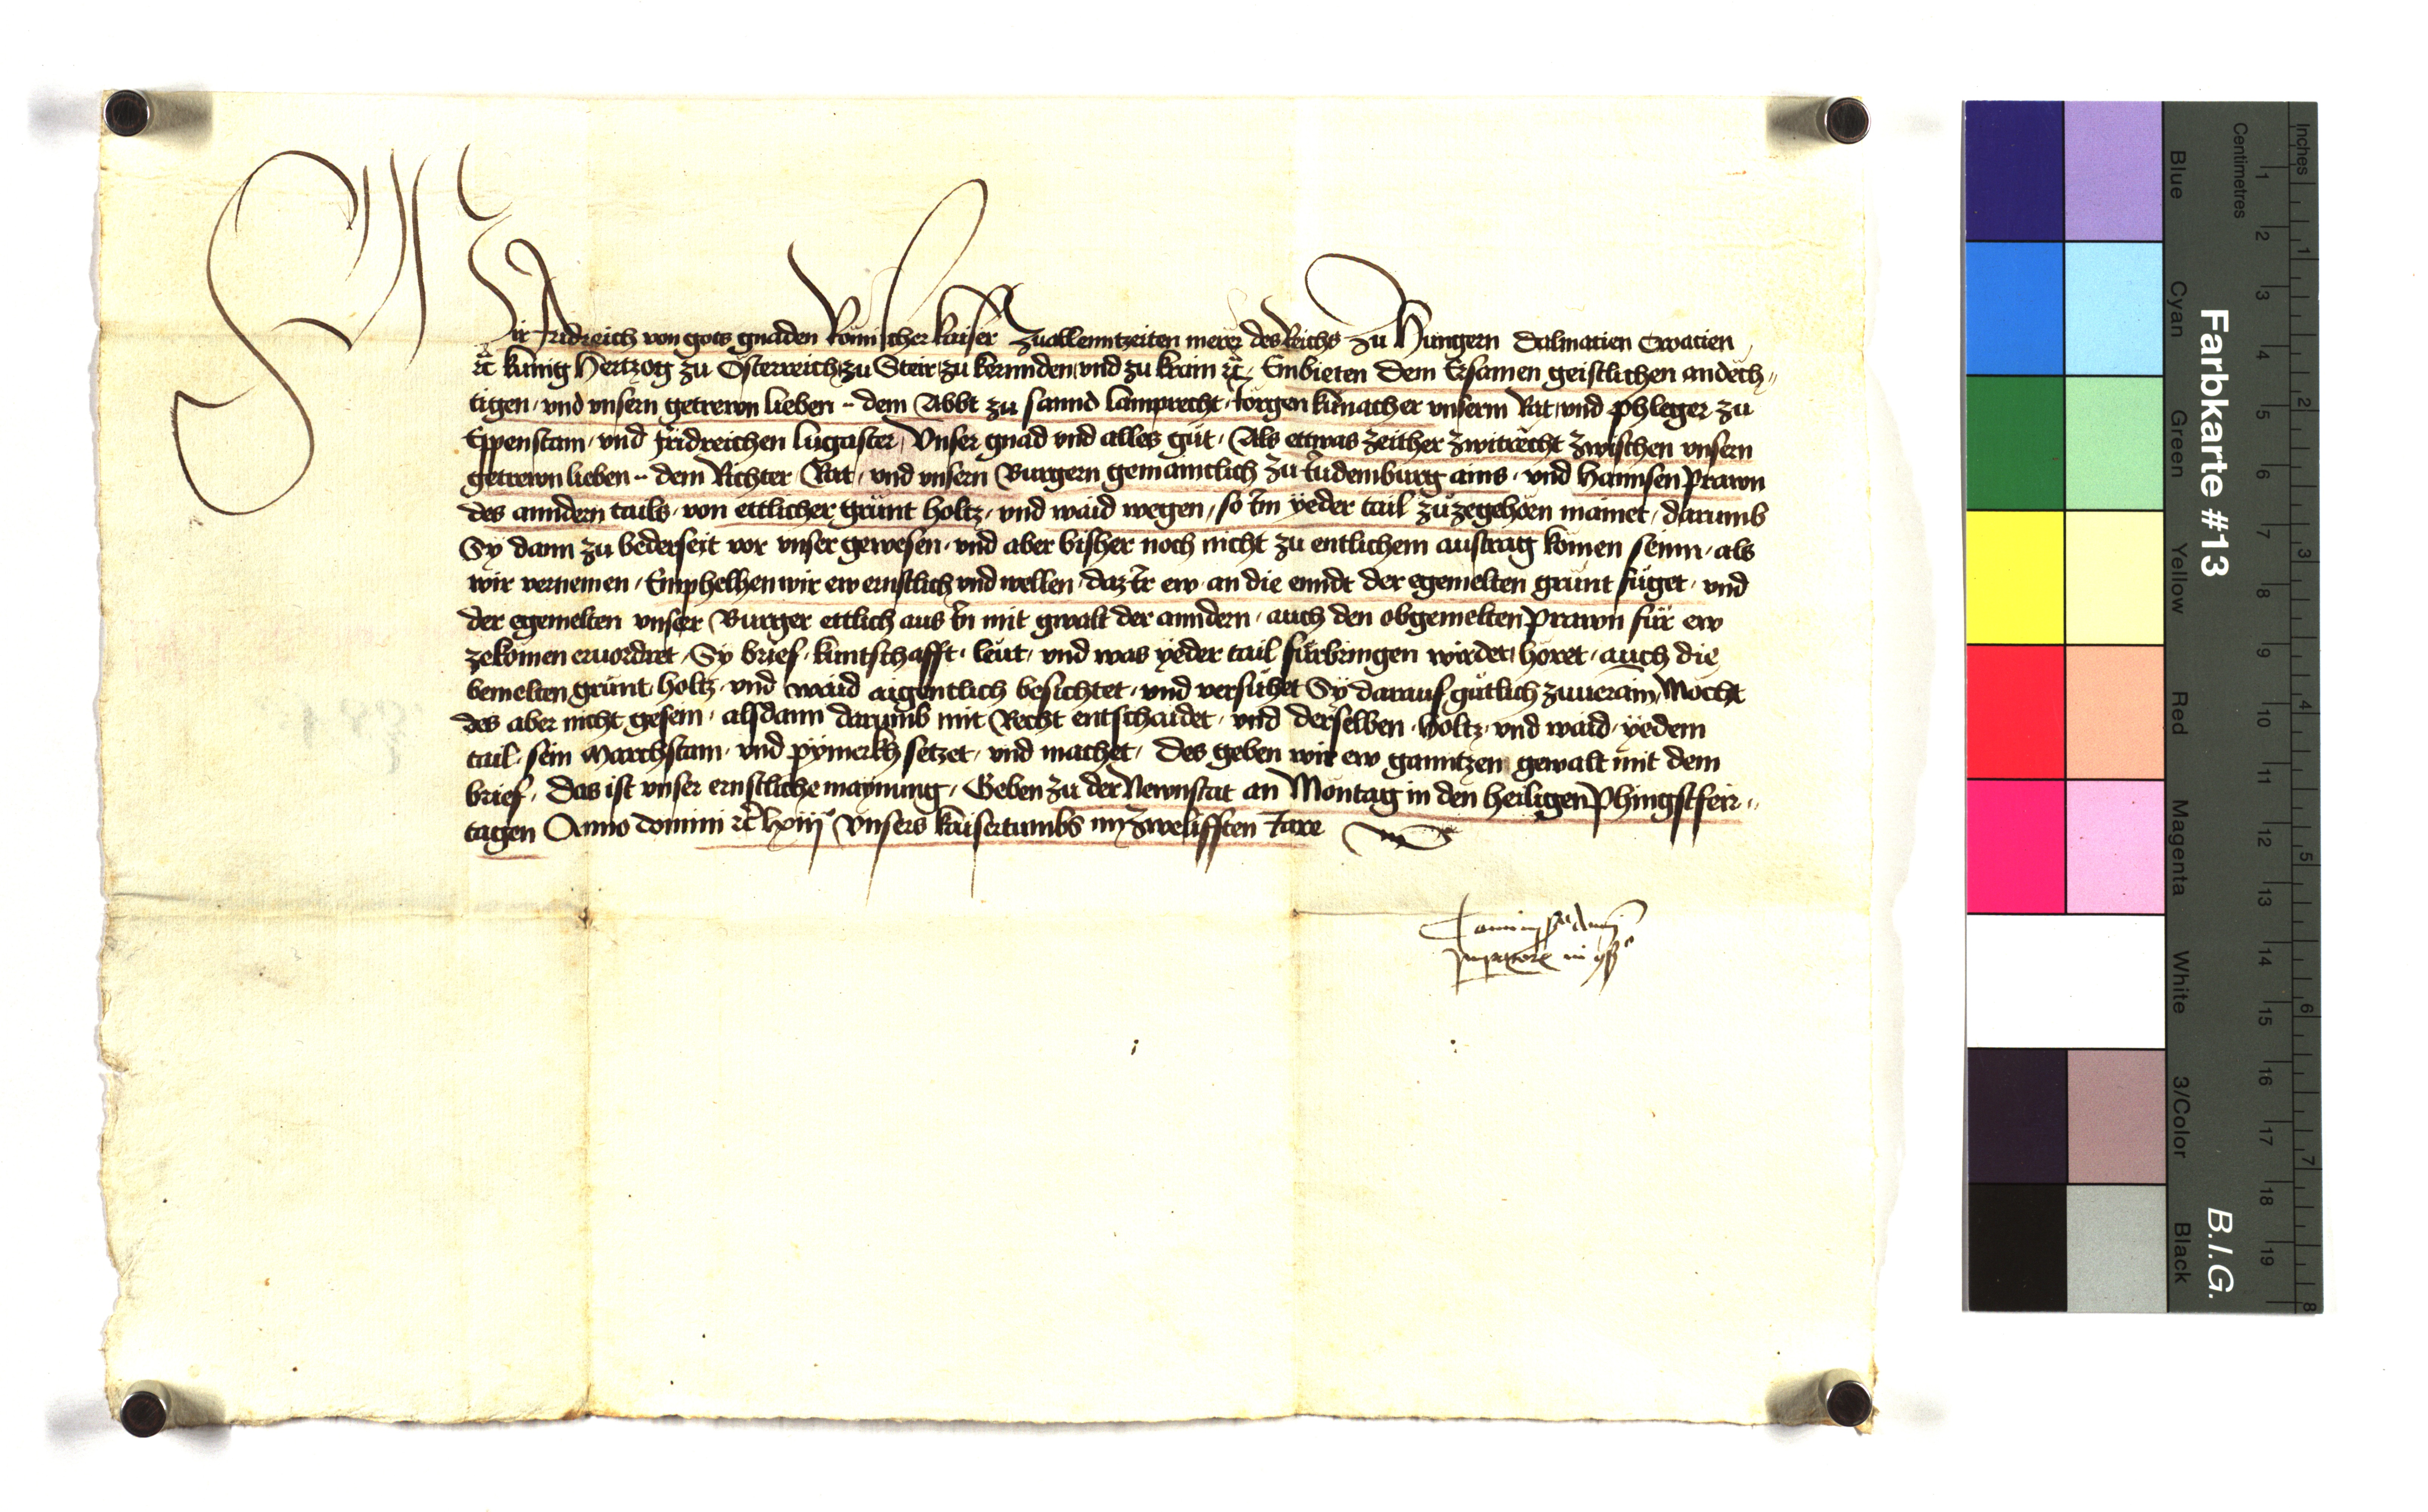 Wir Fridreich von gots gnaden Römischer kaiser zuallenntzeiten merer des Reichs zu Hungern Dalmacien Croacien
etc kunig Hertzog zu Österreich zu Steir zu kernnden und zu krain etc Embieten dem Ersamen geistlichen andech„
tigen und unsern getrewn lieben .. dem Abbt zu sannd lamprecht Jorgen kunacher unserm Rat und phleger zu
Eppenstain und Fridreichen lugaster Unser gnad und alles gut Als ettwas zeither zwitrecht zwischen unsern
getrewn lieben .. dem Richter Rat und unsern Burgern gemaintlich zu Judemburg ains und Hannsen Prawn
des anndern tails von ettlicher grünt holtz und waid wegen so Im yeder tail zuzegehoren mainet darumb
Sy dann zu bederseit vor unser gewesen und aber bisher noch nicht zu entlichem austrag komen seinn als
wir vernemen Emphelhen wir ew ernstlich und wellen daz Ir ew an die enndt der egemelten grünt füget und
der egemelten unser Burger ettlich aus In mit gwalt der anndern auch den obgemelten Prawn für ew
zekomen ervordret Sy brief kuntschafft leut und was yeder tail fürbringen wirdet höret auch die
bemelten grünt holtz und waid aigentlich besichtet und versuhet Sy darauf gütlich zuverain Mocht
des aber nicht gesein alsdann darumb mit Recht entschaidet und derselben holtz und waid yedem
tail sein Marchstain und pymerkh setzet und machet des geben wir ew ganntzen gewalt mit dem
brief Das ist unser ernstliche maynung Geben zu der Newnstat an Montag in den heiligen Phingstfeir„
tagen Anno domini etc lxiii Unsers kaisertumbs im zwelifften Jare
Commissio domini
Imperatoris in consilio
Farbkarte #13
B.I.G.
Inches
Centimetres
1 2 3 4 5 6 7 8
1 2 3 4 5 6 7 8 9 10 11 12 13 14 15 16 17 18 19
Blue
Cyan
Green
Yellow
Red
Magenta
White
3/Color
Black